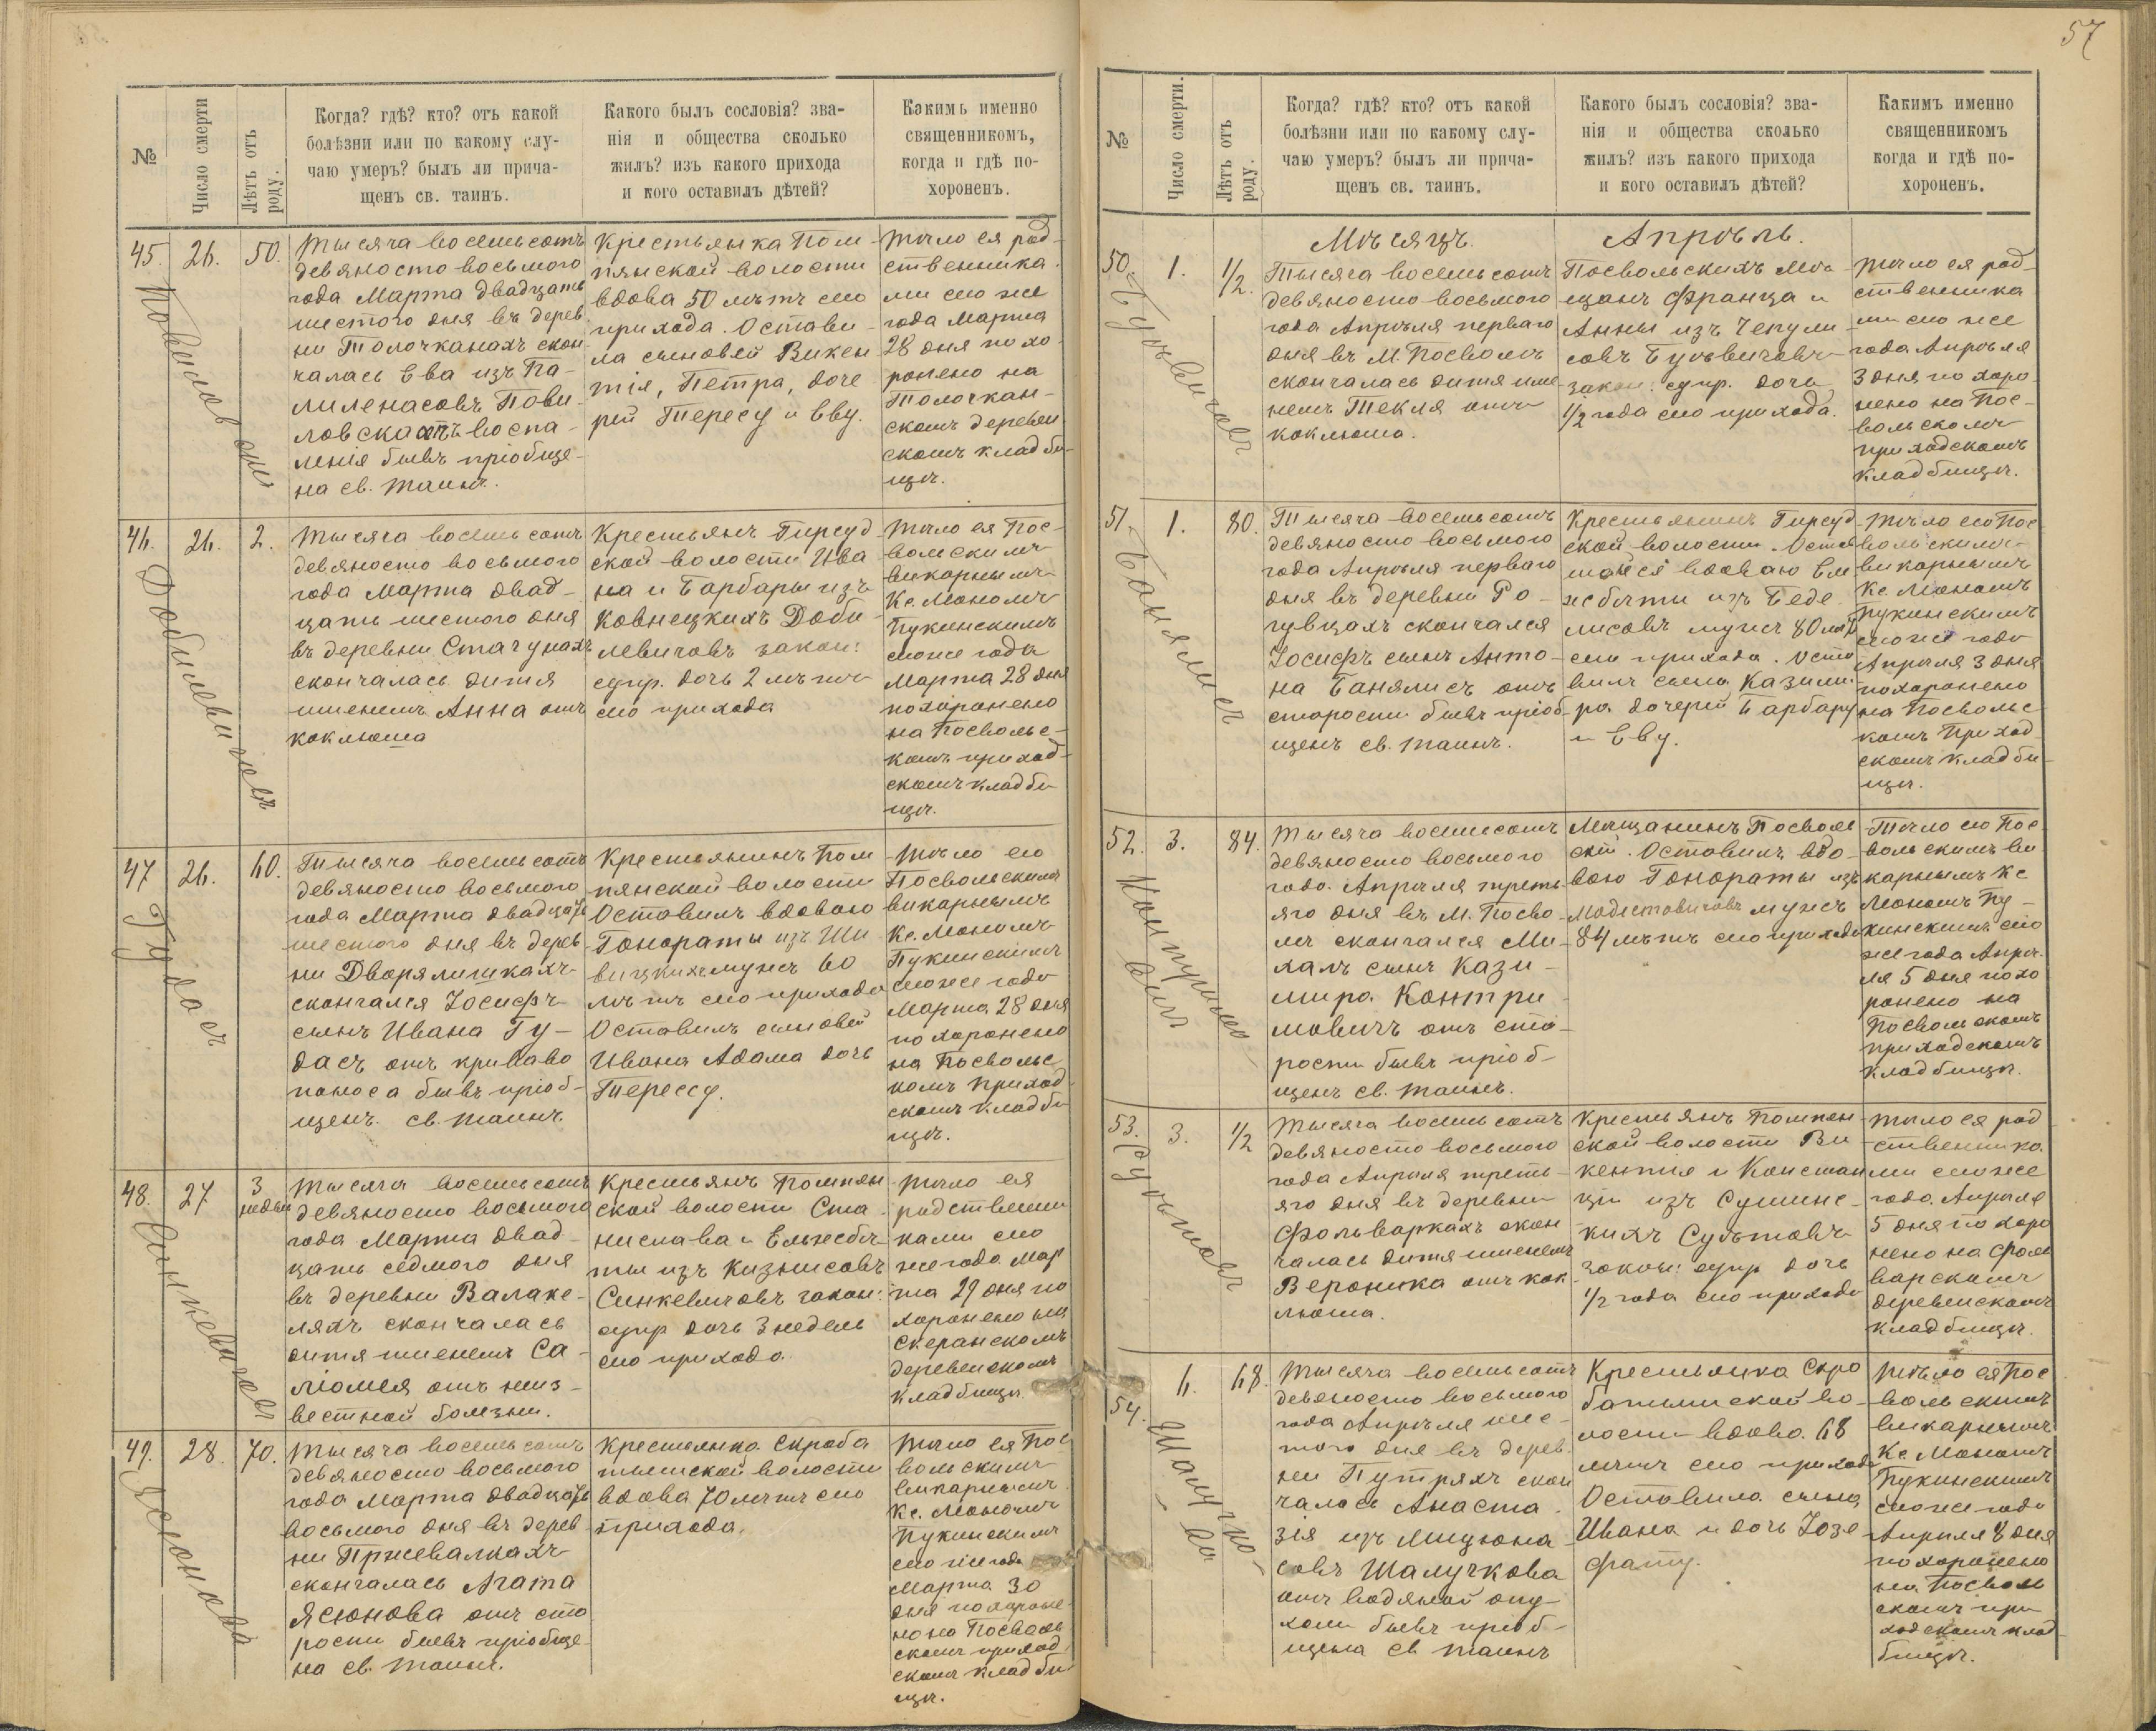 57
№
Число смерти
Лѣтъ отъ роду.
Когда? гдѣ? кто? отъ какой
болѣзни или по какому слу-
чаю умеръ? былъ ли прича-
щенъ св. таинъ.
Какого былъ сословія? зва-
нія и общества сколько
жилъ? изъ какого прихода
и кого оставилъ дѣтей?
Какимъ именно
священникомъ,
когда и гдѣ по-
хороненъ.
45.
26.
50.
Тысяча восемьсотъ
девяносто восьмого
года Марта двадцать
шестого дня въ дерев
ни Толочканахъ скон
чалась Ева изъ Па-
лиленасовъ Пови-
ловска отъ воспа-
ленія бывъ пріобще-
на св. таинъ.
Крестьянка Пом
пянской волости
вдова 50 лѣтъ сего
прихода. Остави-
ла сыновей Викен
тія, Петра, доче
рей Тересу и Еву.
Тѣло ея род-
ственника
ми сего же
года Марта
28 дня похо
ронено на
Толочкан-
скомъ деревен
скомъ кладби-
щѣ.
46.
26.
2.
Добилевичовъ
Тысяча восемьсотъ
девяносто восьмого
года Марта двад-
цать шестого дня
въ деревни Стагунахъ
скончалась дитя
именемъ Анна отъ
коклюша
Крестьянъ Гирсуд
ской волости Ива
на и Барбары изъ
Ковнецкихъ Доби
левичовъ закон:
супр. дочь 2 лѣтъ
сего прихода
Тѣло ея Пос-
вольскимъ
викарнымъ
Кс. Мономъ
Пукинскимъ
сего же года
Марта 28 дня
похоронено
на Посвольс-
комъ приход-
скомъ кладби
щѣ.
47
26.
60.
Гудасъ
Тысяча восемьсотъ
девяносто восьмого
года Марта двадцать
шестого дня въ дерев
ни Дворялишкахъ
скончался Іосифъ
сынъ Ивана Гу-
дасъ отъ криваво
поноса бывъ пріоб-
щенъ св. таинъ.
Крестьянинъ Пом
пянской волости
Оставилъ вдовою
Гонораты изъ Ши
вицкихъ мужъ 60
лѣтъ сего прихода
Оставилъ сыновей
Ивана Адама дочь
Терессу.
Тѣло его
Посвольскимъ
викарнымъ
Кс. Мономъ
Пукинскимъ
сего же года
Марта 28 дня
похоронено
на Посвольс
комъ приход
скомъ кладби
щѣ.
48.
27
3
недѣли
Синкевичовъ
Тысяча восемьсотъ
девяносто восьмого
года Марта двад-
цать седмого дня
въ деревни Валаке-
ляхъ скончалась
дитя именемъ Са-
ломея отъ неиз-
вестной болезни.
Крестьянъ Помпян
ской волости Ста
нислава и Ельжбѣ
ты изъ Кизнисовъ
Синкевичовъ закон:
супр дочь 3 недель
сего прихода.
Тѣло ея
родственни
ками сего
же года Мар
та 29 дня по
хоронено на
Скеранскомъ
деревенскомъ
кладбищѣ.
49.
28.
70.
Ясюнова
Тысяча восемьсотъ
девяносто восьмого
года Марта двадцать
восьмого дня въ дерев
ни Пржевалкахъ
скончалась Агата
Ясюнова отъ ста
рости бывъ пріобще-
на св. таинъ.
Крестьянка Скроба
тышской волости
вдова 70 лѣтъ сего
прихода.
Тѣло ея Пос
вольскимъ
викарнымъ
Кс. Мономъ
Пукинскимъ
сего же года
Марта 30
дня похороне-
но на Посволь
скомъ приход
скомъ кладби
щѣ.
№
Число смерти.
Лѣтъ отъ роду.
Когда? гдѣ? кто? отъ какой
болѣзни или по какому слу-
чаю умеръ? былъ ли прича-
щенъ св. таинъ.
Какого былъ сословія? зва-
нія и общества сколько
жилъ? изъ какого прихода
и кого оставилъ дѣтей?
Какимъ именно
священникомъ
когда и гдѣ по-
хороненъ.
Мѣсяцъ. Апрѣль.
50.
1.
1/2.
Тысяча восемьсотъ
девяносто восьмого
года Апрѣля перваго
дня въ М. Посволѣ
скончалась дитя име
немъ Текля отъ
коклюша.
Посвольскихъ мѣ
щанъ Франца и
Анны изъ Чепули
совъ
закон. супр. дочь
1/2 года сего прихода.
Тѣло ея род-
ственника
ми сего же
года Апрѣля
3 дня похоро
нено на Пос-
вольскомъ
приходскомъ
кладбищѣ.
51.
1.
80.
Банялисъ
Тысяча восемьсотъ
девяносто восьмого
года Апрѣля перваго
дня въ деревни Ро-
гувцахъ скончался
Іосифъ сынъ Анто-
на Банялисъ отъ
старости бывъ пріоб-
щенъ св. таинъ.
Крестьянинъ Гирсуд
ской волости. Остав
шойся вдовою Ель
жбѣты изъ Беде
лисовъ мужъ 80 лѣтъ
сего прихода. Оста
вилъ сына Казими
ра дочерей Барбару
и Еву.
Тѣло его Пос
вольскимъ
викарнымъ
Кс. Мономъ
Пукинскимъ
сего же года
Апрѣля 3 дня
похоронено
на Посвольс
комъ Приход
скомъ кладби-
щѣ.
52.
3.
84.
Тысяча восемьсотъ
девяносто восьмого
года Апрѣля треть
яго дня въ М. Посво
лѣ скончался Ми-
халъ сынъ Кази-
мира Контри
мовичъ отъ ста-
рости бывъ пріоб-
щенъ св. таинъ.
Мѣщанинъ Посволь
скій. Оставилъ вдо-
вою Гонораты изъ
Модестовичовъ мужъ
84 лѣтъ сего прихода
Тѣло его Пос
вольскимъ ви
карнымъ Кс
Мономъ Пу-
кинскимъ сего
же года Апрѣ-
ля 5 дня похо
ронено на
Посвольскомъ
приходскомъ
кладбищѣ.
53.
3.
1/2
Тысяча восемьсотъ
девяносто восьмого
года Апрѣля треть-
яго дня въ деревни
Фольваркахъ скон
чалась дитя именемъ
Вероника отъ кок
люша.
Крестьянъ Помпян
ской волости Ви
кентія и Констан
ціи изъ Сушинс-
кихъ
закон: супр дочь
1/2 года сего прихода
Тѣло ея род
ственника
ми сего же
года Апрѣля
5 дня похоро
нено на Фоль
варскомъ
деревенскомъ
кладбищѣ.
54.
6.
68.
Шалучко-
ва
Тысяча восемьсотъ
девяносто восьмого
года Апрѣля шес-
того дня въ дерев
ни Путряхъ скон
чалась Анаста
зія изъ Мицюна
совъ Шалучкова
отъ водяной опу-
холи бывъ пріоб-
щена св таинъ
Крестьянка Скро
батышской во-
лости вдова 68
лѣтъ сего прихода
Оставила сына
Ивана и дочь Іозе
фату.
Тѣло ея Пос
вольскимъ
викарнымъ
Кс. Мономъ
Пукинскимъ
сего же года
Апрѣля 8 дня
похоронено
на Посволь
скомъ при
ходскомъ клад
бищѣ.